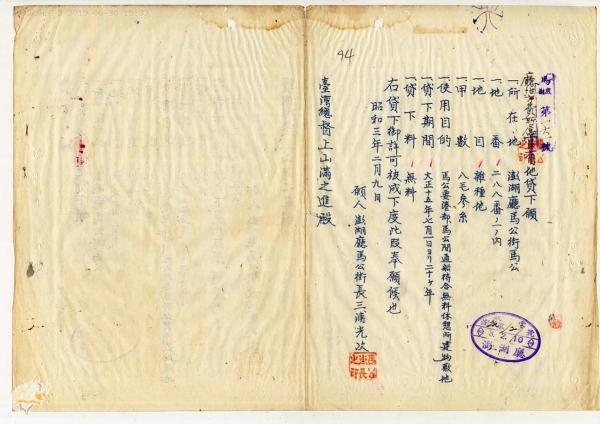 94
馬庶第一六號
官有地貸下願
一所在地 澎湖廳馬公街馬公
一地番 二八八番ノ一ノ内
一地目 雜種地
一甲數 八毛參糸
一使用目的 馬公要港部、馬公間通船待合無料休憩所建物敷地
一貸下期間 大正十五年七月一日ヨリ二十ヶ年
一貸下料 無料
右貸下御許可被成下度此段奉願候也
昭和三年二月九日
願人 澎湖廳馬公街長三浦光次
馬公街長之印
臺灣總督上山滿之進殿
澎湖廳
3.2.10